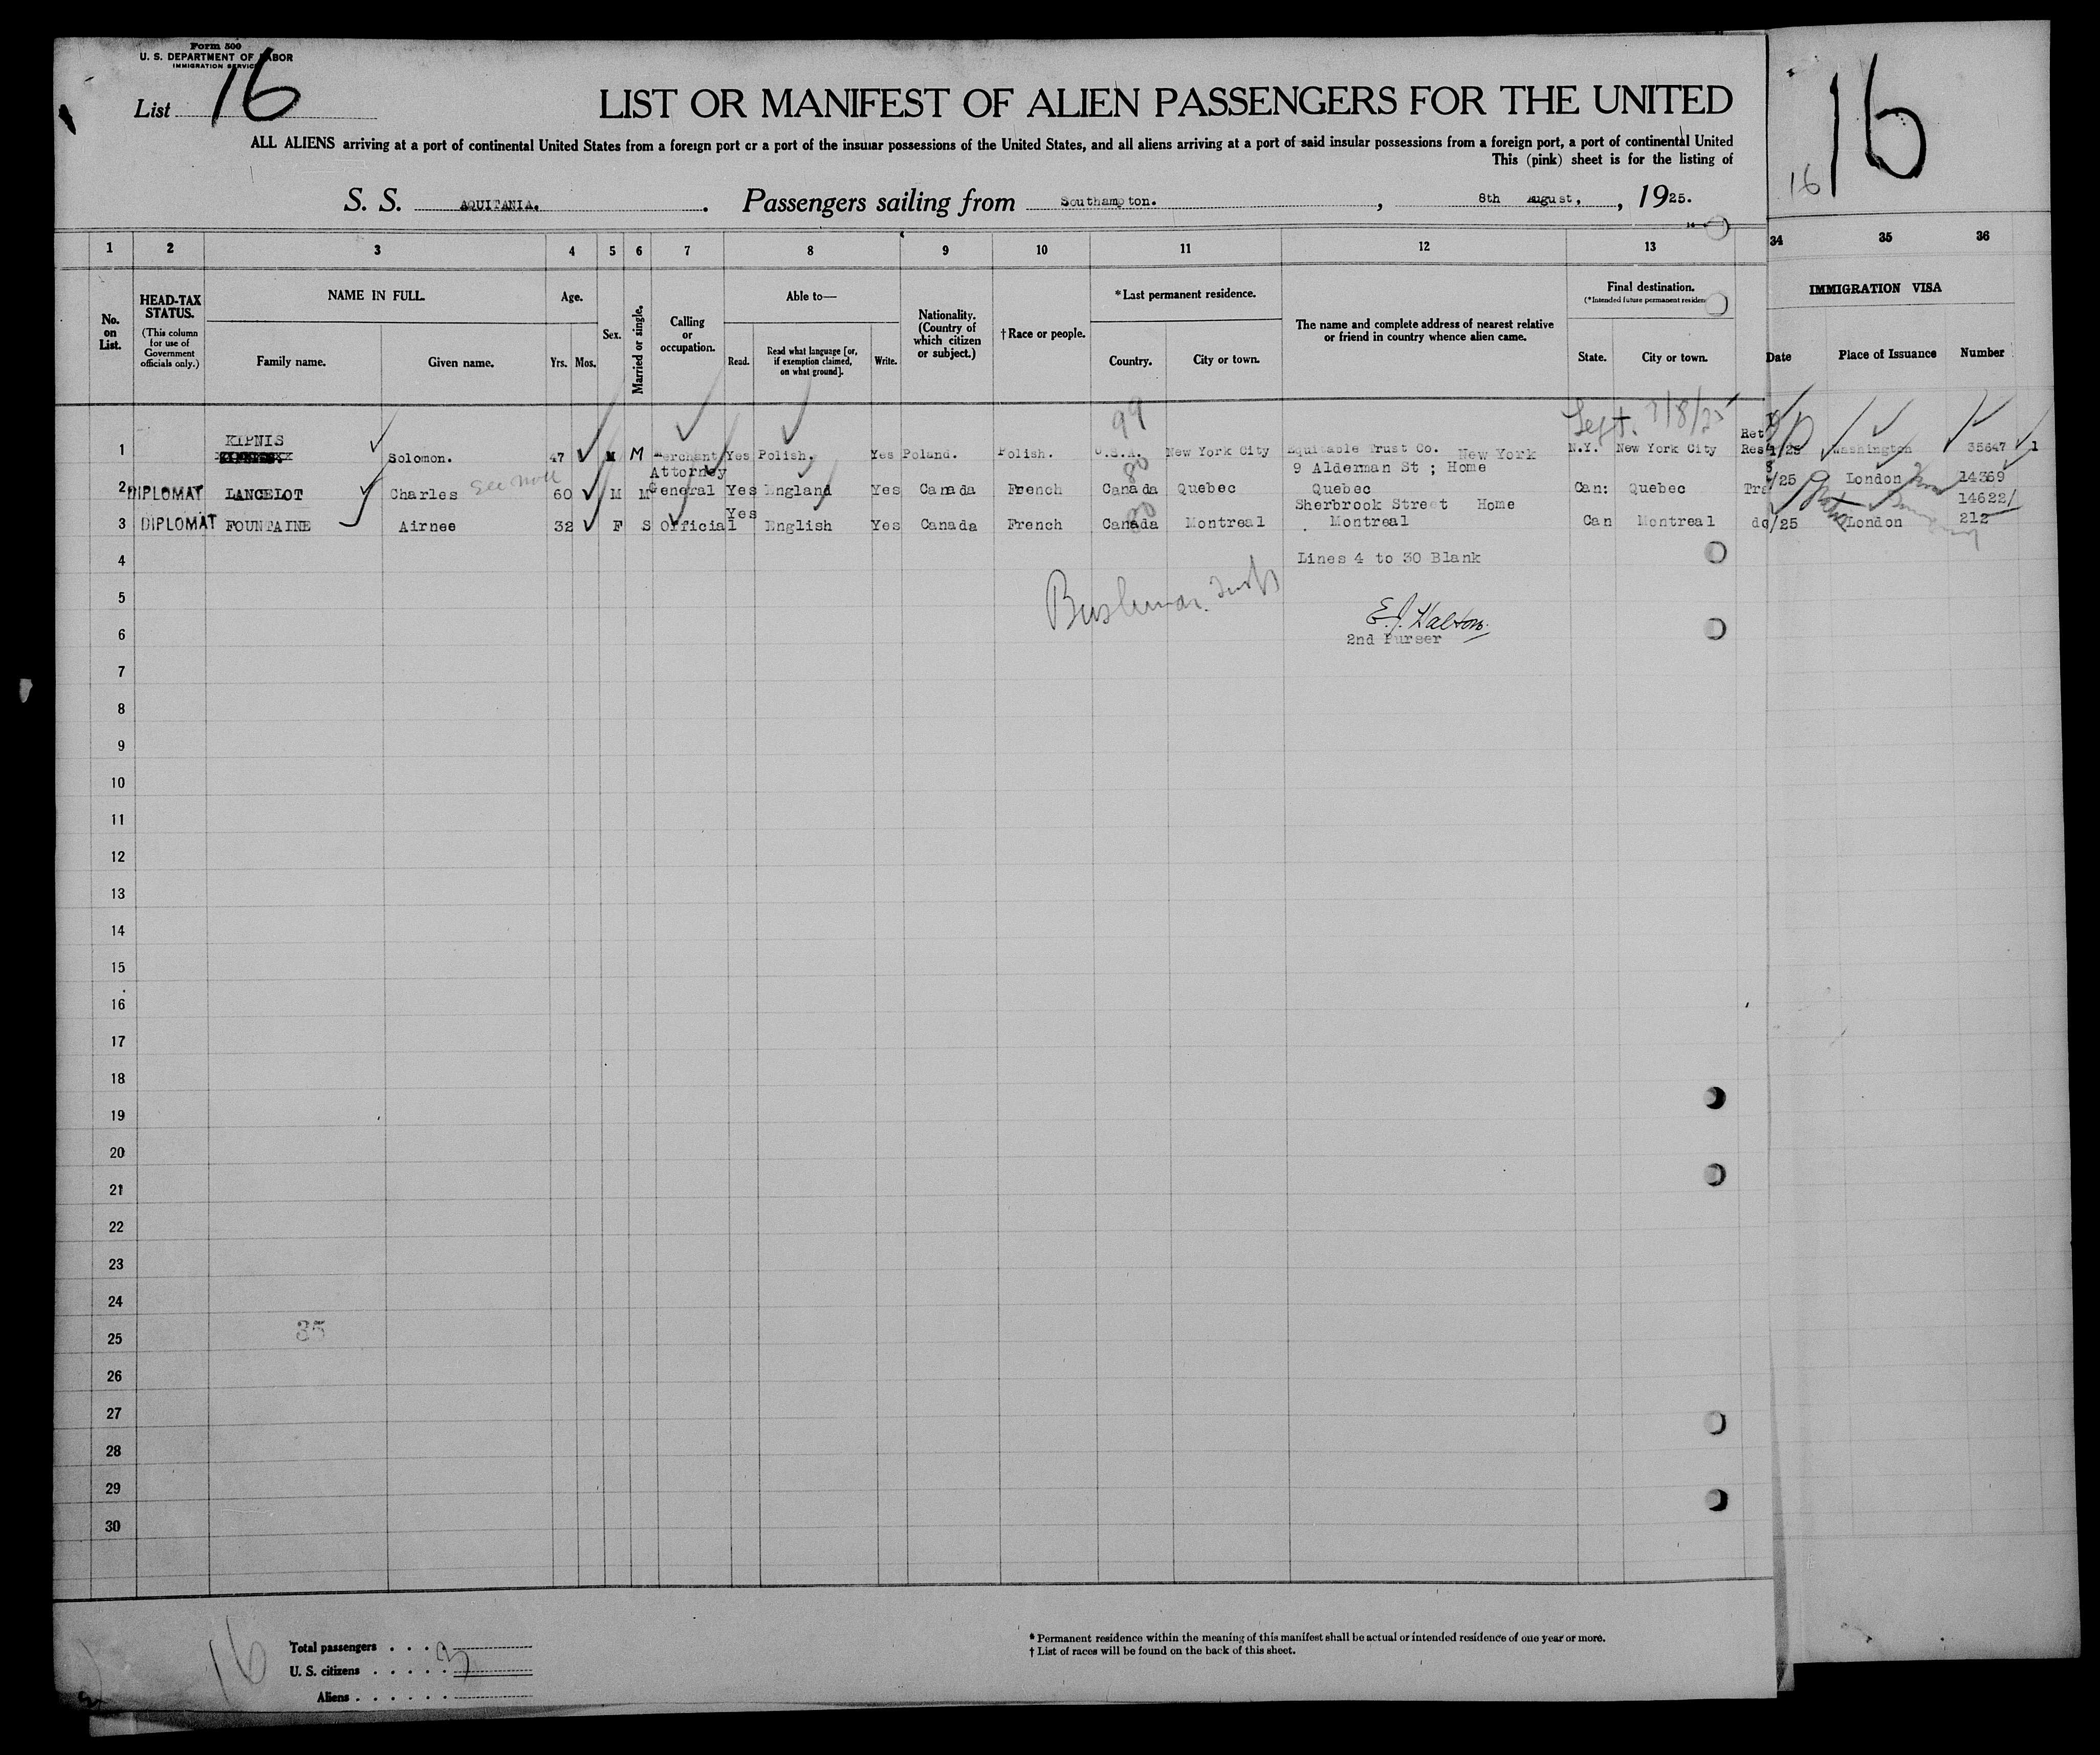 Form 500
U. S. DEPARTMENT OF LABOR
IMMIGRATION SERVICE
List 16
LIST OR MANIFEST OF ALIEN PASSENGERS FOR THE UNITED
ALL ALIENS arriving at a port of continental United States from a foreign port or a port of the insular possessions of the United States, and all aliens arriving at a port of said insular possessions from a foreign port, a port of continental United
This (pink) sheet is for the listing of
S. S. AQUITANIA. Passengers sailing from Southampton. , 8th August, , 1925.
16
16
1 2 3 4 5 6 7 8 9 10 11 12 13 34 35 36
No. on List.
HEAD-TAX STATUS.
(This column for use of Government officials only.)
NAME IN FULL.
Family name. Given name.
Age.
Yrs. Mos.
Sex.
Married or single.
Calling or occupation.
Able to—
Read. Read what language [or, if exemption claimed, on what ground]. Write.
Nationality. (Country of which citizen or subject.)
†Race or people.
*Last permanent residence.
Country. City or town.
The name and complete address of nearest relative or friend in country whence alien came.
Final destination.
(*Intended future permanent residen
State. City or town.
IMMIGRATION VISA
Date Place of Issuance Number
99 Sept.
KIPNIS
1 Solomon. 47 M M Merchant Yes Polish. Yes Poland. Polish. U.S.A. New York City Equitable Trust Co. New York N.Y. New York City Ret Res /25 Washington 35647 1
Attorney 80 9 Alderman St ; Home
2 DIPLOMAT LANCELOT Charles see note 60 M M General Yes England Yes Canada French Canada Quebec Quebec Can: Quebec Tra /25 London 14369
Yes Sherbrook Street Home 14622/
3 DIPLOMAT FOUNTAINE Airnee 32 F S Official English Yes Canada French Canada 80 Montreal Montreal Can Montreal do /25 London 212
4 Lines 4 to 30 Blank
5
6 E.J. Halton.
2nd Purser
7
8
9
10
11
12
13
14
15
16
17
18
19
20
21
22
23
24
35
25
26
27
28
29
30
16
Total passengers . . . . 3
U. S. citizens . . . . .
Aliens . . . . . .
* Permanent residence within the meaning of this manifest shall be actual or intended residence of one year or more.
† List of races will be found on the back of this sheet.